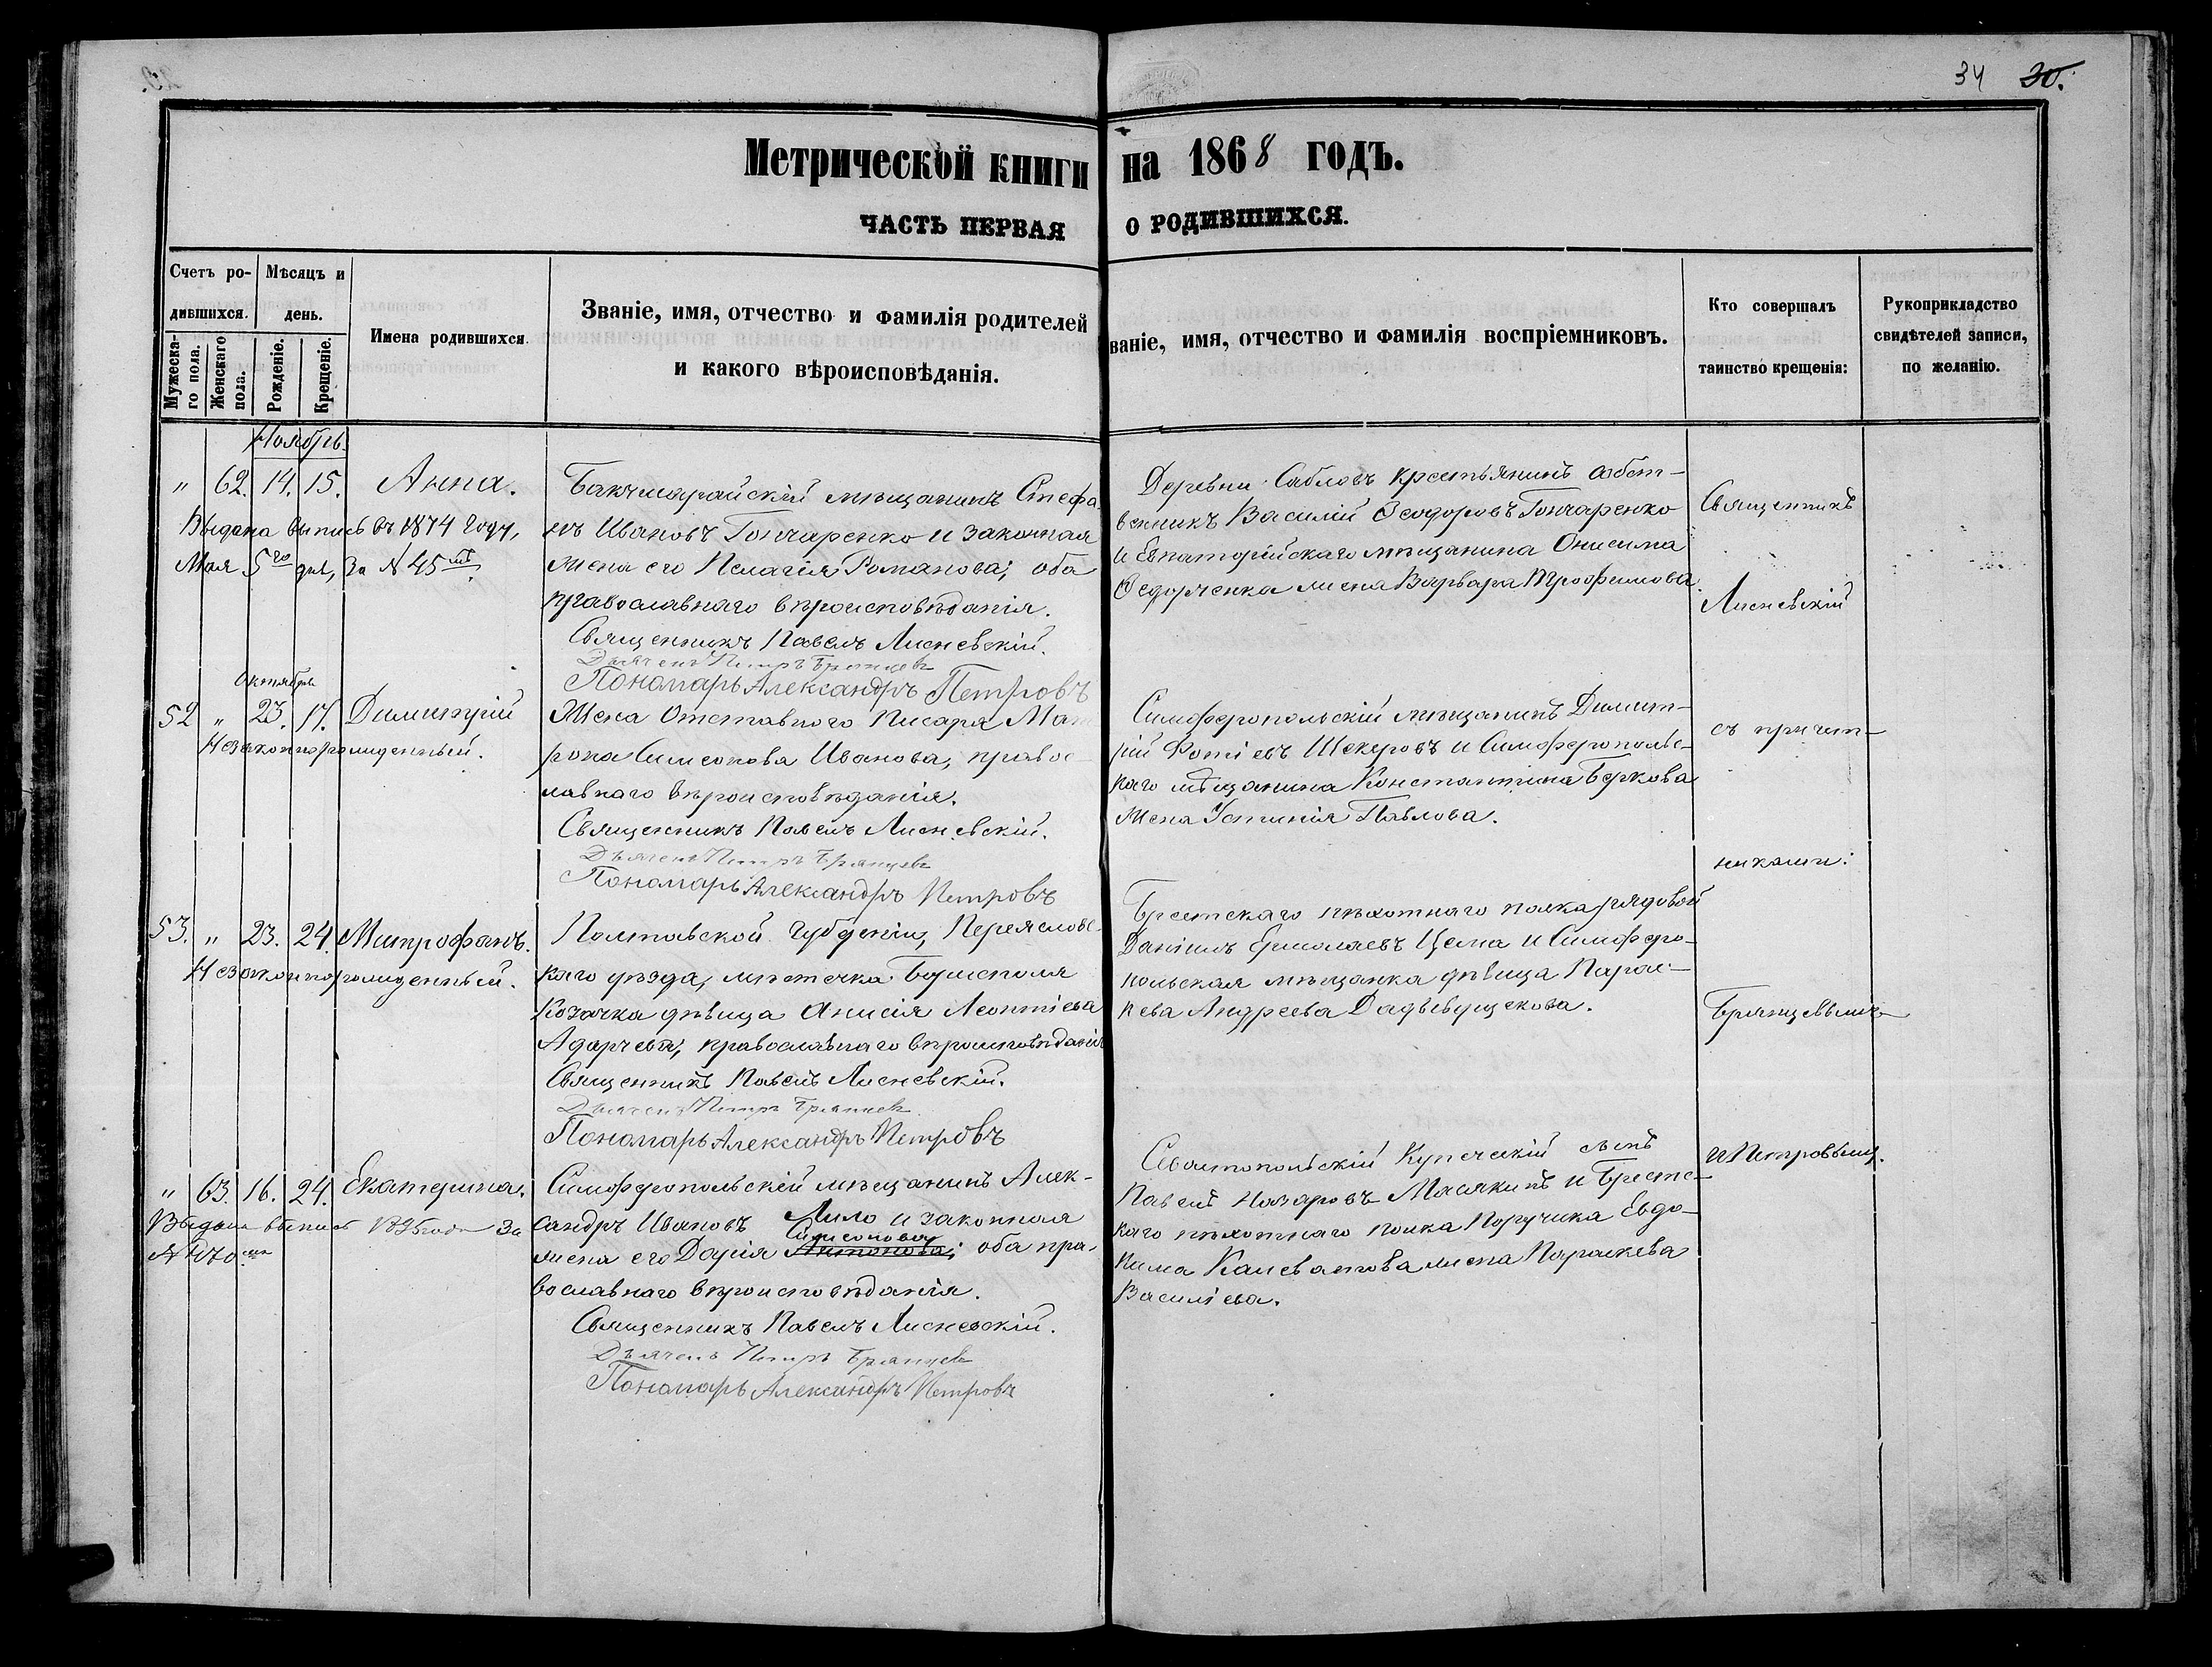 34 30.
Метрической книги на 1868 годъ.
ЧАСТЬ ПЕРВАЯ О РОДИВШИХСЯ.
Счетъ родившихся.
Мужескаго пола.
Женскаго пола.
Мѣсяцъ и день.
Рожденіе.
Крещеніе.
Имена родившихся.
Званіе, имя, отчество и фамилія родителей
и какого вѣроисповѣданія.
ваніе, имя, отчество и фамилія воспріемниковъ.
Кто совершалъ
таинство крещенія:
Рукоприкладство
свидѣтелей записи,
по желанію.
Ноябрь.
" 62. 14. 15. Анна.
Выдана выпись въ 1874 году,
Мая 5го дня, за № 45мъ
Бакчисарайскій мѣщанинъ Стефа
нъ Ивановъ Гончаренко и законная
жена его Пелагія Романова; оба
православнаго вѣроисповѣданія.
Священникъ Павелъ Лисневскій.
Дьячекъ Петръ Брянцевъ
Пономарь Александръ Петровъ
Деревни Сабловъ крестьянинъ собст-
венникъ Василій Ѳеодоровъ Гончаренко
и Евпаторійскаго мѣщанина Онисима
Ѳедорченка жена Варвара Трофимова.
Священникъ
Лисневскій
Октябрь
52 " 23. 17. Димитрій
Незаконнорожденный.
Жена Отставного Писаря Мат
рона Симеонова Иванова, правос
лавнаго вѣроисповѣданія.
Священникъ Павелъ Лисневскій.
Дьячекъ Петръ Брянцевъ
Пономарь Александръ Петровъ
Симферопольскій мѣщанинъ Димит-
рій Фотіевъ Шекеровъ и Симферопольс-
каго мѣщанина Константина Беркова
жена Устинія Павлова.
съ причет-
никами:
53. " 23. 24. Митрофанъ.
Незаконнорожденный.
Полтавской губерніи, Переяславс-
каго уѣзда, мѣстечка Борисполя
Козачка дѣвица Анисія Леонтіева
православнаго вѣроисповѣданія
Священникъ Павелъ Лисневскій.
Дьячекъ Петръ Брянцевъ
Пономарь Александръ Петровъ
Брестскаго пѣхотнаго полка рядовой
Даніилъ Ермолаевъ Цема и Симферо-
польская мѣщанка дѣвица Парас-
кева Андреева
Брянцевымъ
" 63. 16. 24. Екатерина.
Выдана выпись года За
№ 470
Симферопольскій мѣщанинъ Алек-
сандръ Ивановъ Лило и законная
Симеонова
жена его Дарія Антонова; оба пра-
вославнаго вѣроисповѣданія.
Священникъ Павелъ Лисневскій.
Дьячекъ Петръ Брянцевъ
Пономарь Александръ Петровъ
Севастопольскій Купеческій сынъ
Павелъ Назаровъ Масякинъ и Брестс-
каго пѣхотнаго полка Поручика Евдо-
кима жена Параскева
Василіева.
и Петровымъ.